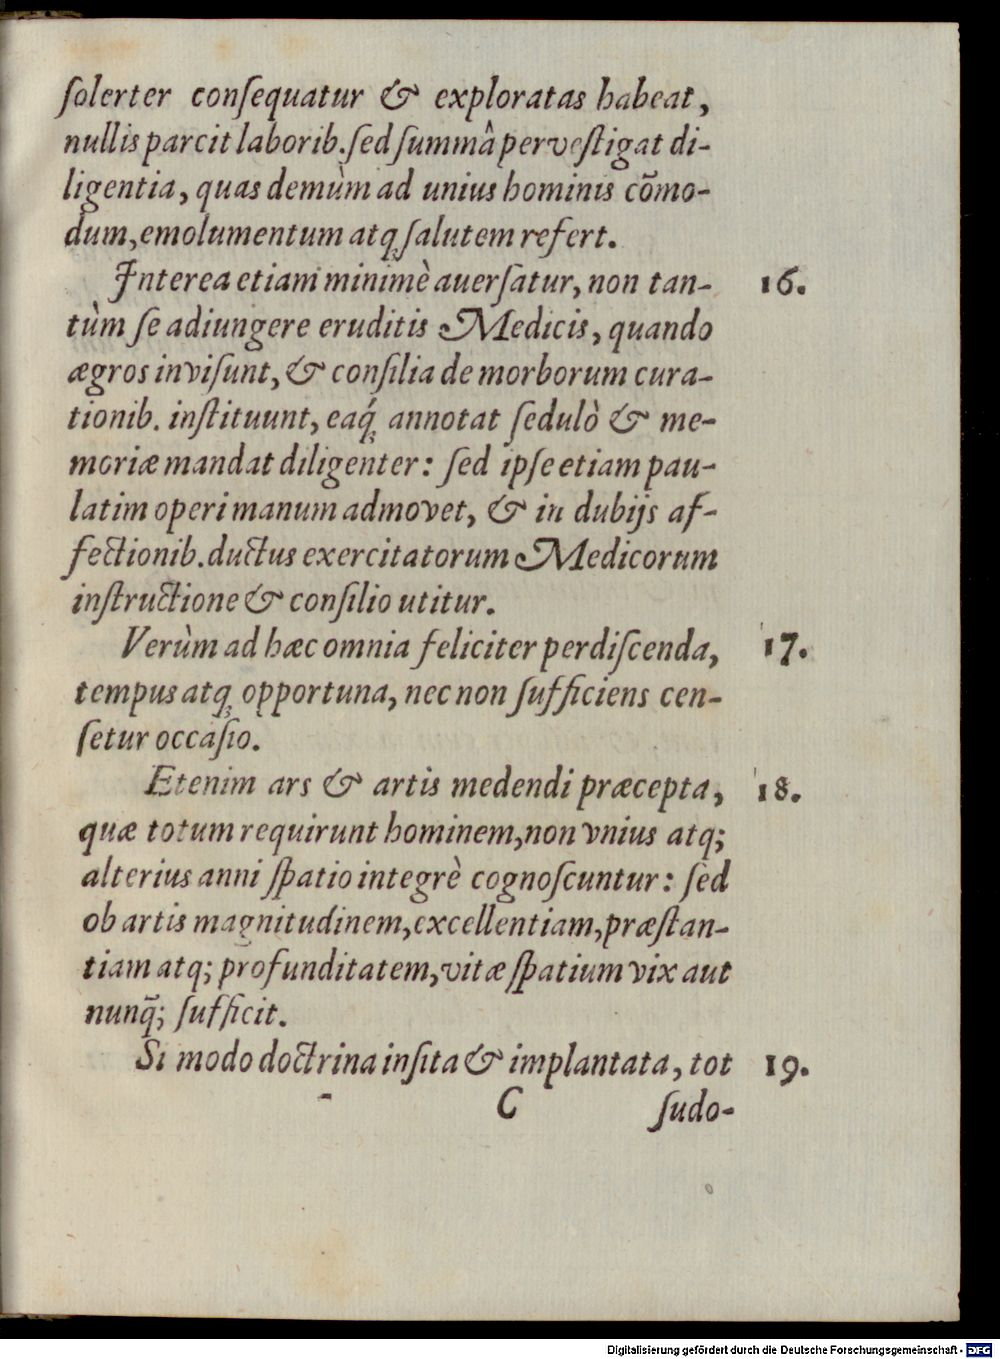 ſolerter conſequatur & exploratas habeat,
nullis parcit laborib. ſed ſummâ perveſtigat di-
ligentia, quas demùm ad unius hominis cõmo-
dum, emolumentum atq; ſalutem refert.
Interea etiam minimè auerſatur, non tan- 16.
tùm ſe adiungere eruditis Medicis, quando
ægros inviſunt, & conſilia de morborum cura-
tionib. inſtituunt, eaq́; annotat ſedulò & me-
moriæ mandat diligenter: ſed ipſe etiam pau-
latim operi manum admovet, & in dubijs af-
fectionib. ductus exercitatorum Medicorum
inſtructione & conſilio utitur.
Verùm ad hæc omnia feliciter perdiſcenda, 17.
tempus atq; opportuna, nec non ſufficiens cen-
ſetur occaſio.
Etenim ars & artis medendi præcepta, 18.
quæ totum requirunt hominem, non vnius atq;
alterius anni ſpatio integrè cognoſcuntur: ſed
ob artis magnitudinem, excellentiam, præſtan-
tiam atq; profunditatem, vitæ ſpatium vix aut
nunq̃; ſufficit.
Si modo doctrina inſita & implantata, tot 19.
C ſudo-
Digitalisierung gefördert durch die Deutsche Forschungsgemeinschaft - DFG